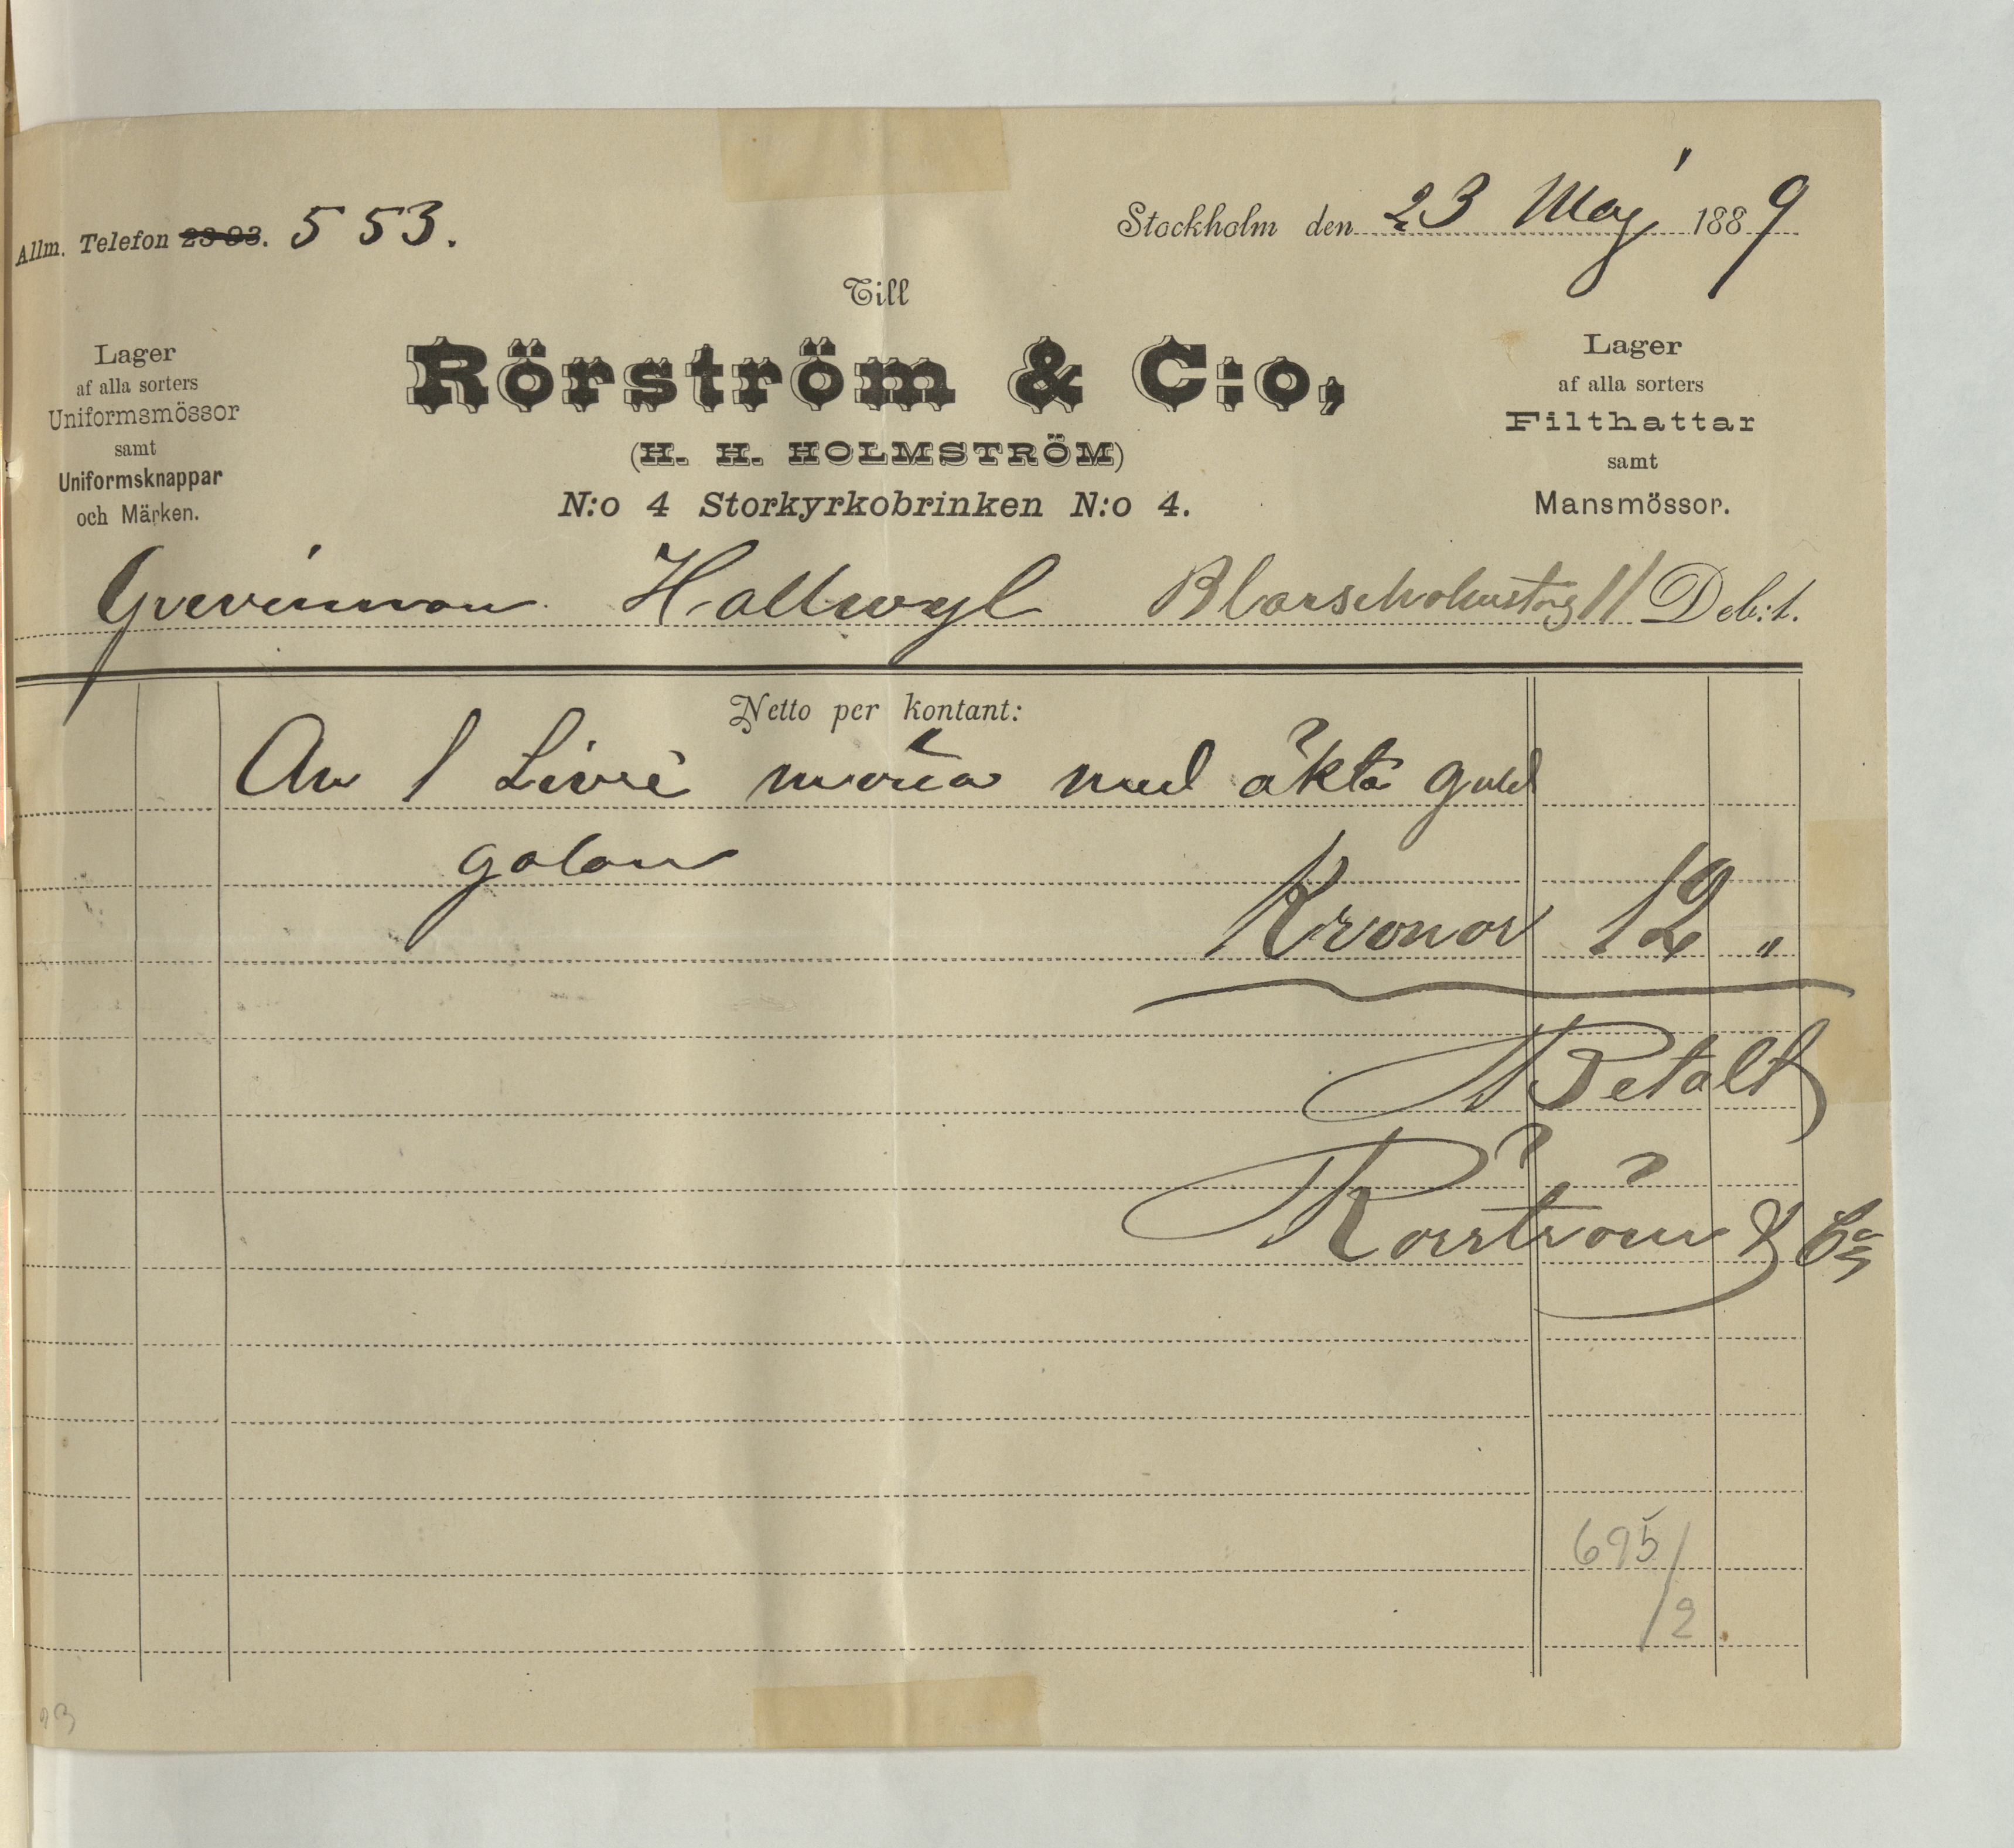 Allm. Telefon 23 93. 553.
Stockholm den 23 Maj 1889
Till
Lager
af alla sorters
Uniformsmössor
samt
Uniformsknappar
och Märken.
Rörström & C:o,
(H. H. HOLMSTRÖM)
N:o 4 Storkyrkobrinken N:o 4.
Lager
af alla sorters
Filthattar
samt
Mansmössor.
Grevinnan Hallwyl Blasieholmstorg 11 Deb:t.
Netto per kontant:
An 1 Livré mössa med äkta guld
galon
Kronor 12 "
Betalt
Rörström & Co
695/2